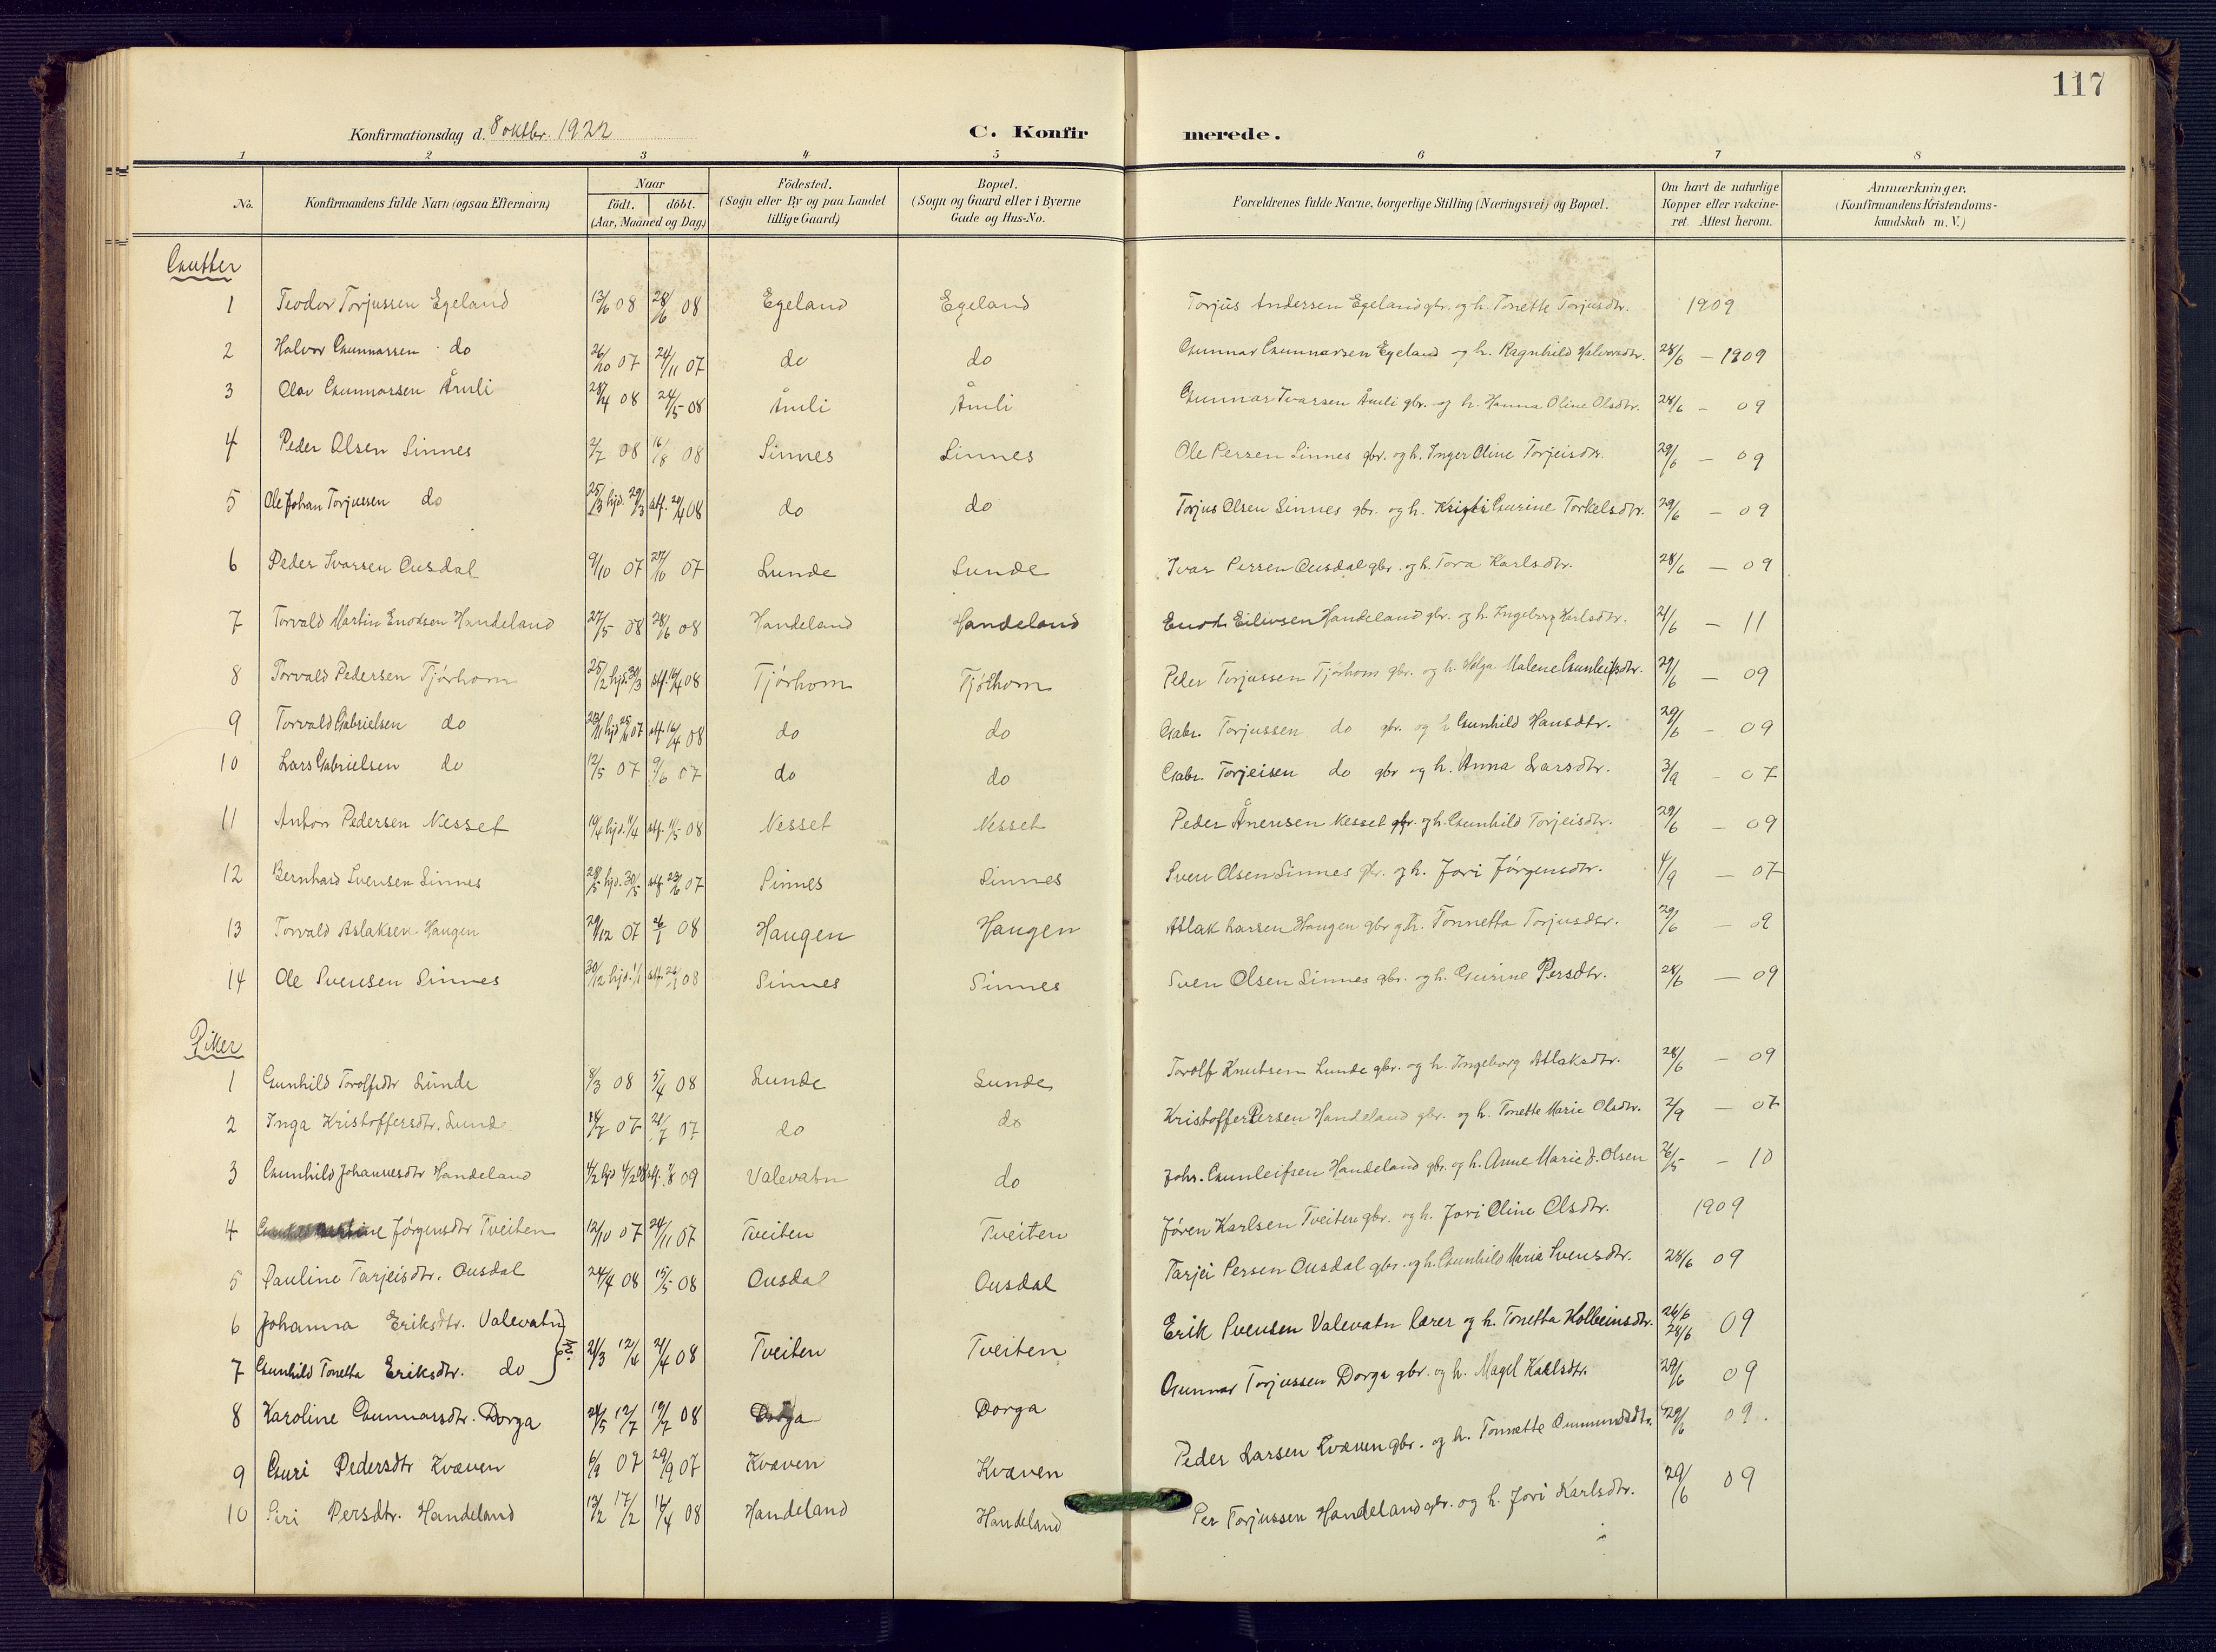 117
Konfirmationsdag d. 8 oktbr. 1922 C. Konfirmerede.
1 2 3 4 5 6 7 8
No. Konfirmandens fulde Navn (ogsaa Efternavn) Naar født. døbt. (Aar, Maaned og Dag) Fødested. (Sogn eller By og paa Landet tillige Gaard) Bopæl. (Sogn og Gaard eller i Byerne Gade og Hus-No. Forældrenes fulde Navne, borgerlige Stilling (Næringsvei) og Bopæl. Om havt de naturlige Kopper eller vaccineret. Attest herom. Anmærkninger. (Konfirmandens Kristendomskundskab m. V.)
Gutter
1 Teodor Torjussen Egeland 13/6 08 28/6 08 Egeland Egeland Torjus Andersen Egeland gbr. og h. Tonette Torjusdtr. 1909
2 Halvor Gunnarsen do 26/10 07 24/11 07 do do Gunnar Gunnarsen Egeland og h. Ragnhild Halvorsdtr. 28/6 – 1909
3 Olav Gunnarsen Åmli 28/4 08 24/5 08 Åmli Åmli Gunnar Ivarsen Åmli gbr. og h. Hanna Oline Olsdtr. 28/6 – 09
4 Peder Olsen Sinnes 2/7 08 16/8 08 Sinnes Sinnes Ole Persen Sinnes gbr. og h. Inger Oline Torjeisdtr. 29/6 – 09
5 Ole Johan Torjussen do 25/3 hjd. 29/3 stf. 20/4 08 do do Torjus Olsen Sinnes gbr. og h. Gurine Torkelsdtr. 29/6 – 09
6 Peder Ivarsen Ousdal 9/10 07 27/10 07 Lunde Lunde Ivar Persen Ousdal gbr. og h. Tora Karlsdtr. 28/6 – 09
7 Torvald Martin Enoksen Handeland 27/5 08 28/6 08 Handeland Handeland Enok Eilivsen Handeland gbr. og h. Ingeborg Karlsdtr. 21/6 – 11
8 Torvald Pedersen Tjørhom 25/2 hjd. 30/3 stf. 16/4 08 Tjørhom Tjørhom Peder Torjussen Tjørhom gbr. og h. Helga Malene Gunleifsdtr. 29/6 – 09
9 Torvald Gabrielsen do 23/11 hjd 25/11 07 stf. 16/4 08 do do Gabr. Torjussen do gbr. og h Gunhild Hansdtr. 29/6 – 09
10 Lars Gabrielsen do 12/5 07 9/6 07 do do Gabr. Torjeisen do gbr og h. Anna Larsdtr. 3/9 – 07
11 Anton Pedersen Nesset 10/4 hjd. 11/4 stf. 11/5 08 Nesset Nesset Peder Ånensen Nesset gbr. og h. Gunhild Torjeisdtr. 29/6 – 09
12 Bernhard Svensen Sinnes 28/5 hjd. 30/5 stf 23/6 07 Sinnes Sinnes Sven Olsen Sinnes gbr. og h. Jori Jørgensdtr. 4/9 – 07
13 Torvald Aslaksen Haugen 29/12 07 26/1 08 Haugen Haugen Aslak Larsen Haugen gbr og h. Tonnetta Torjusdtr. 29/6 – 09
14 Ole Svensen Sinnes 30/12 hjd. 1/1 stf. 08 Sinnes Sinnes Sven Olsen Sinnes gbr. og h. Gurine Persdtr. 28/6 – 09
Piker
1 Gunhild Torolfsdtr Lunde 8/3 08 5/4 08 Lunde Lunde Torolf Knutsen Lunde gbr. og h. Ingeborg Atlaksdtr. 28/6 – 09
2 Inga Kristoffersdtr. Lunde 14/7 07 21/7 07 do do Kristoffer Persen Handeland gbr. og h. Tonette Marie Olsdtr. 2/9 – 07
3 Gunhild Johannesdtr Handeland 4/2 hjd 4/2 stf. 09 Valevatn do Johs. Gunleifsen Handeland gbr. og h. Anne Marie J. Olsen 26/5 – 10
4 Jørgensdtr Tveiten 12/10 07 24/11 07 Tveiten Tveiten Jøren Karlsen Tveiten gbr. og h. Jori Oline Olsdtr. 1909
5 Pauline Tarjeisdtr. Ousdal 24/4 08 15/5 08 Ousdal Ousdal Tarjei Persen Ousdal gbr. og h. Gunhild Maria Svensdtr. 28/6 09
6 Johanna Eriksdtr. Valevatn
7 Gunhild Tonetta Eriksdtr. do 21/3 12/4 21/4 08 Tveiten Tveiten Erik Svensen Valevatn lærer og h. Tonetta Kolbeinsdtr. 26/6 28/6 09
8 Karoline Gunnarsdtr. Dorga 24/5 12/7 19/7 08 Dorga Dorga Gunnar Torjussen Dorga gbr. og h. Magel Karlsdtr. 29/6 09
9 Guri Pedersdtr Kvæven 6/9 07 29/9 07 Kvæven Kvæven Peder Larsen Kvæven gbr. og h. Tonnette Ommundsdtr. 29/6 09.
10 Siri Persdtr. Handeland 13/2 17/2 16/4 08 Handeland Handeland Per Torjussen Handeland gbr. og h. Jori Karlsdtr. 29/6 09